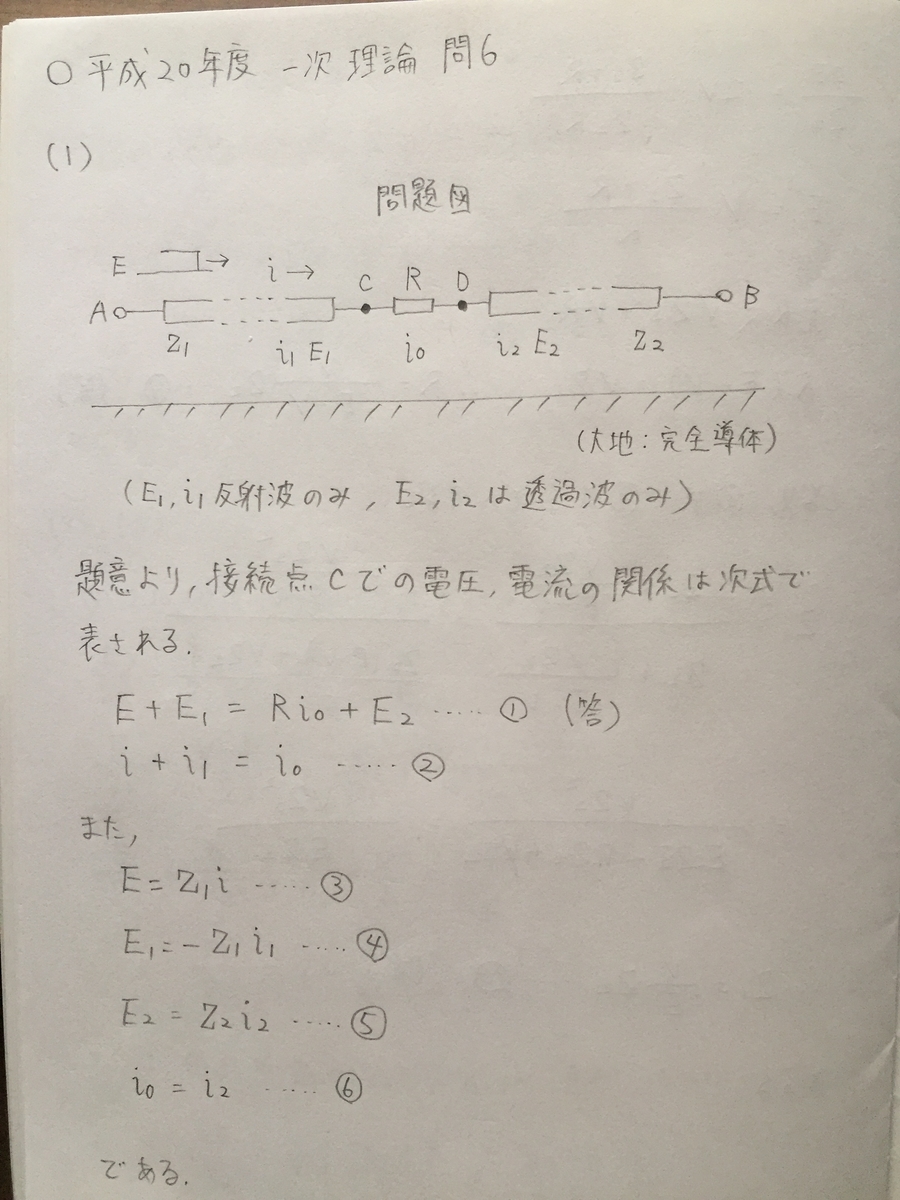 ○ 平成20年度 一次 理論 問6
(1)
問題図
E i→ C R D
A B
Z₁ i₁ E₁ i₀ i₂ E₂ Z₂
(大地:完全導体)
(E₁, i₁ 反射波のみ, E₂, i₂ は透過波のみ)
題意より, 接続点Cでの電圧, 電流の関係は次式で
表される.
E + E₁ = Ri₀ + E₂ ····· ① (答)
i + i₁ = i₀ ····· ②
また,
E = Z₁i ····· ③
E₁ = - Z₁ i₁ ····· ④
E₂ = Z₂ i₂ ····· ⑤
i₀ = i₂ ····· ⑥
である.